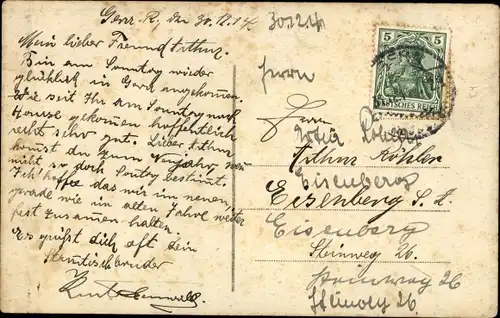 Gera. R. den 30.12.14.
30.12.14.
Mein lieber Freund Arthur.
Bin am Sonntag wieder
glücklich in Gera angekommen.
Wie seit Ihr am Sonntag nach
House gekomen hoffentlich
recht sehr gut. Lieber Arthur
komst du zum Neujahr, wen
nicht so doch Sontag bestimmt.
Ich hoffe das wir im neuen,
gerade wie im alten Jahre weiter
fest zusamen halten.
Es grüßt dich oft dein
Stamtischbruder
Kurt
5 5
DEUTSCHES REICH
Herrn
Herrn
Arthur Köhler
Eisenberg
Eisenberg S. A.
Eisenberg
Steinweg 26.
Steinweg 26
Steinweg 26